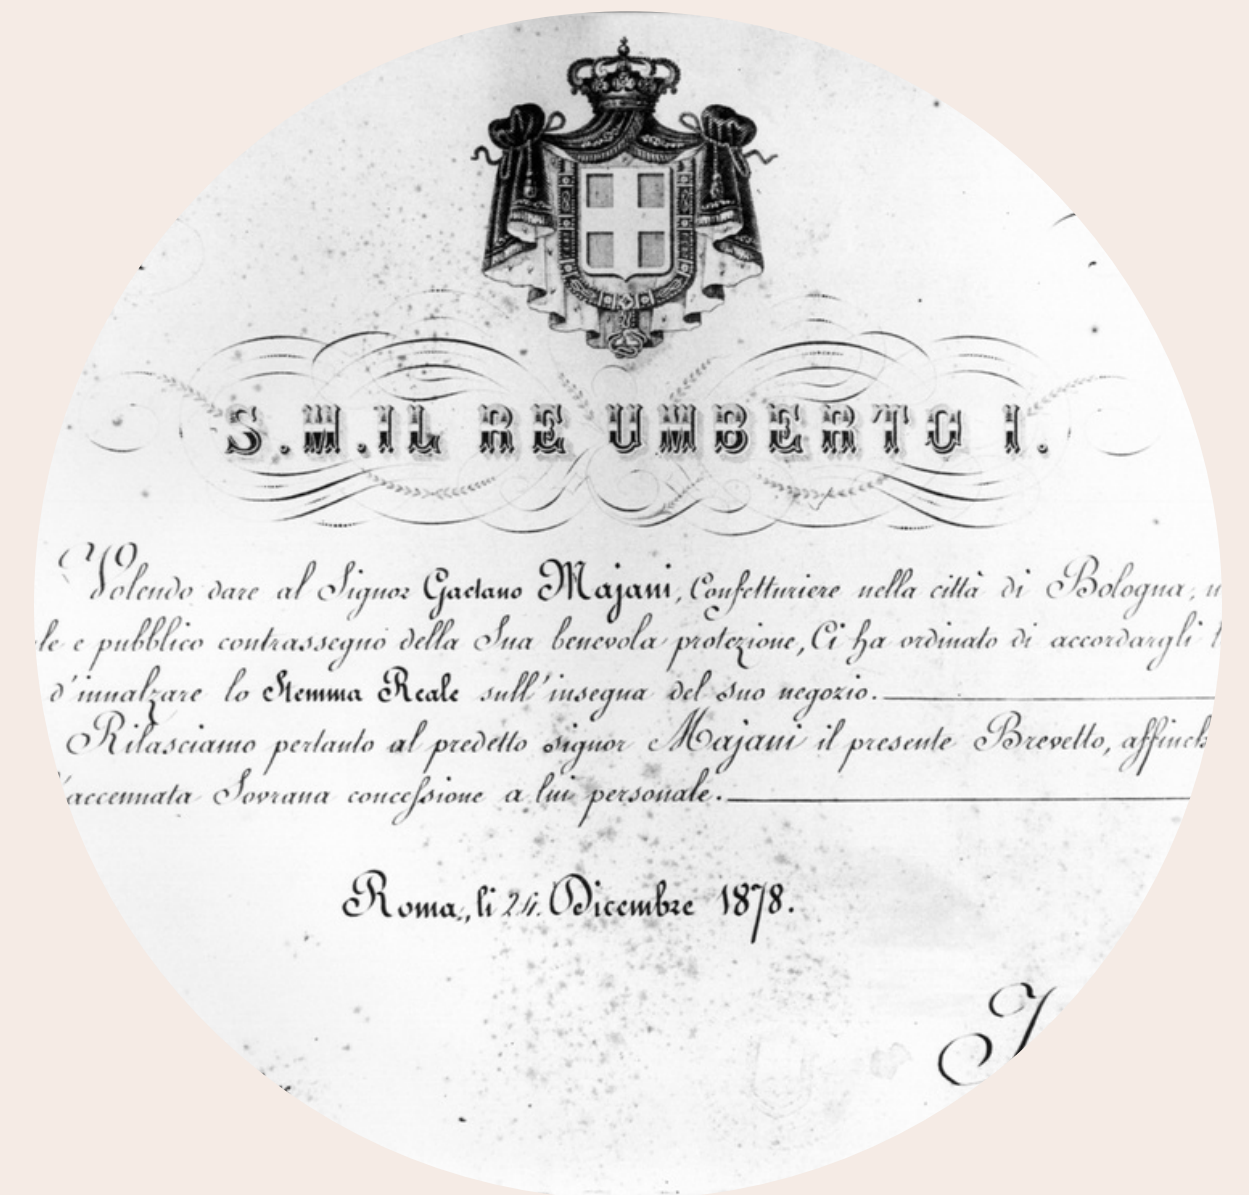 S.M.IL RE UMBERTO I.
Volendo dare al Signor Gaetano Majani, Confetturiere nella città di Bologna,
e pubblico contrassegno della Sua benevola protezione, Ci ha ordinato di accordargli
d'innalzare lo Stemma Reale sull'insegna del suo negozio.
Rilasciamo pertanto al predetto signor Majani il presente Brevetto,
accennata Sovrana concessione a lui personale.
Roma, li 24. Dicembre 1878.